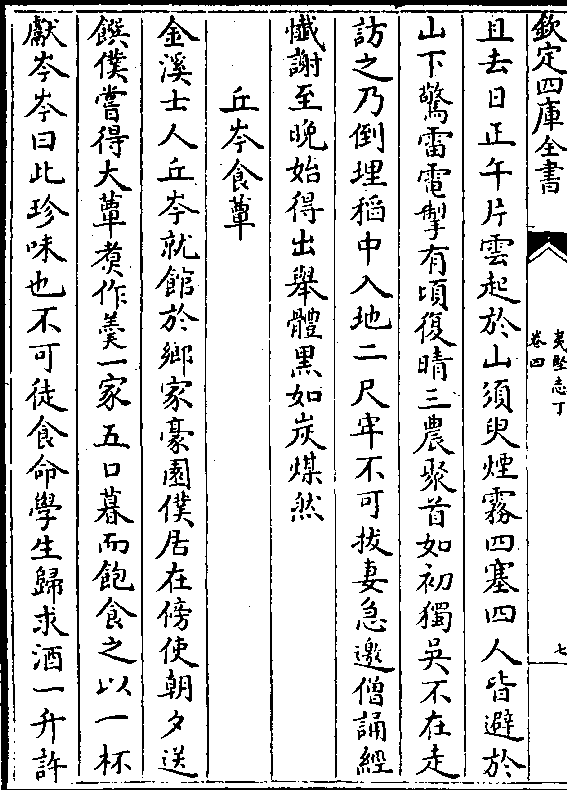 欽定四庫全書
夷堅志丁
卷四
七
且去日正午片雲起於山須臾煙霧四塞四人皆避於
山下驚雷電掣有頃復晴三農聚首如初獨吳不在走
訪之乃倒埋稻中入地二尺牢不可拔妻急邀僧誦經
懺謝至晚始得出舉體黑如炭煤然
丘岑食蕈
金溪士人丘岑就館於鄉家豪園僕居在傍使朝夕送
饌僕嘗得大蕈煑作羹一家五口暮而飽食之以一杯
獻岑岑曰此珍味也不可徒食命學生歸求酒一升許